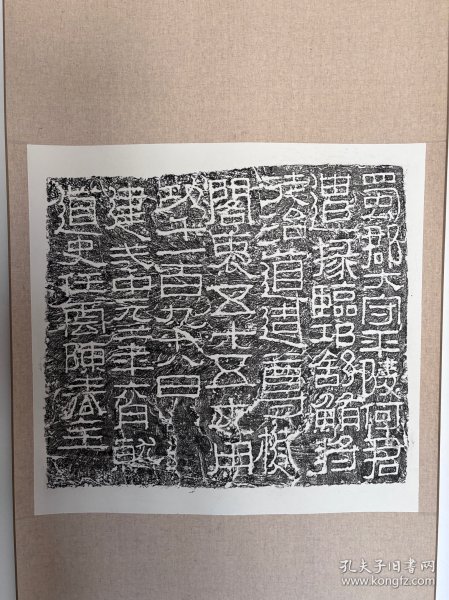 蜀郡大守平陵何君
遣掾臨邛舒鮪將
徒治道造尊楗
閣袤五十五丈用
功千一百九十八日
建武中元二年六月就
道史任雲陳春主
孔夫子旧书网
www.kongfz.com